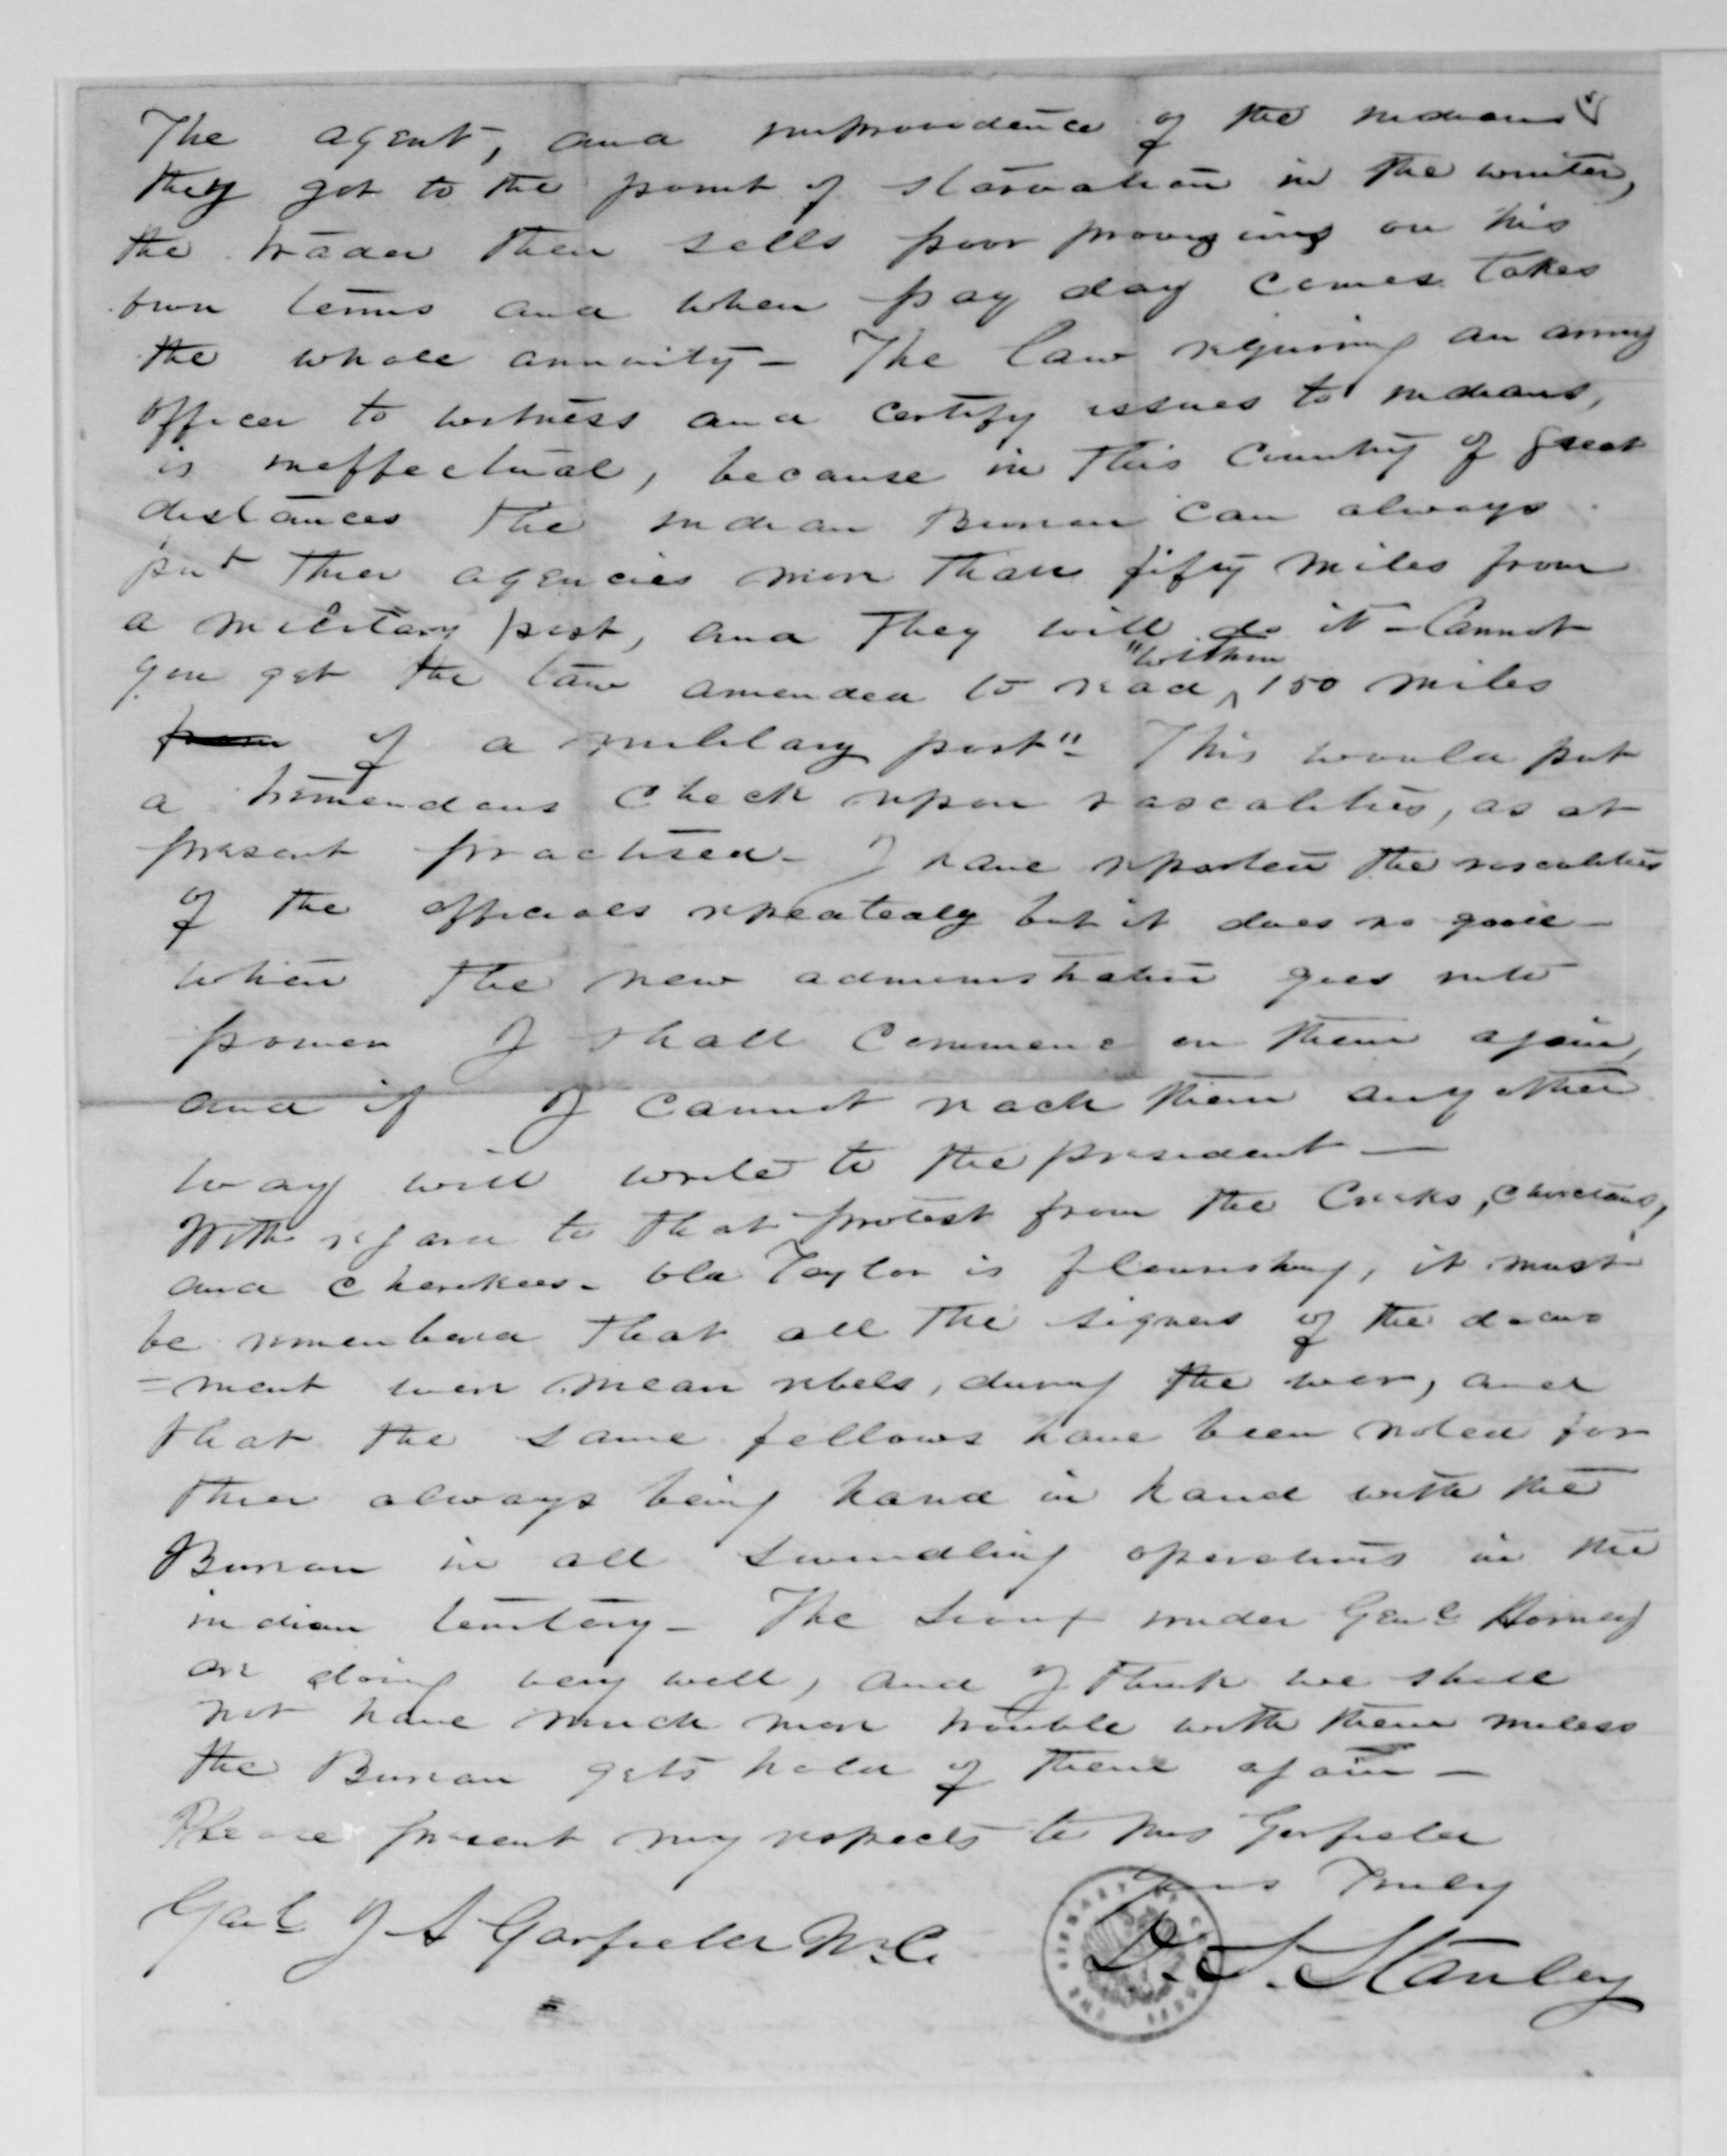 The agent, and improvidence of the indians
they got to the point of starvation in the winter,
the trader then sells poor provisions on his
own terms and when pay day comes takes
the whole annuity - The law requiring an army
officer to witness and certify issues to indians,
is ineffectual, because in this Country of great
distances the indian Bureau can always
put their agencies more than fifty miles from
a military post, and they will do it - Cannot
you get the law amended to read "within 150 miles
from of a military post" - This would put
a tremendous check upon rascalities, as at
present practised - I have reported the rascalities
of the officials repeatedly but it does no good -
when the new administration goes into
power I shall commence on them again,
and if I cannot reach them any other
way will write to the president -
With regard to that protest from the Creeks, Choctaws,
and Cherokees - old Taylor is flourishing, it must
be remembered that all the signers of the docu
=ment were mean rebels, during the war, and
that the same fellows have been noted for
their always being hand in hand with the
Bureau in all swindling operations in the
indian territory - The Sioux under Genl Harney
are doing very well, and I think we shall
not have much more trouble with them unless
the Bureau gets hold of them again -
Please present my respects to Mrs Garfield
Yours Truly
Genl J A Garfield M.C.
D. S. Stanley